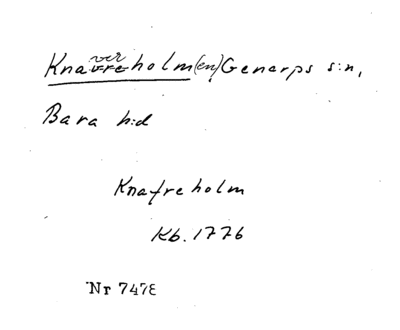 Knaverholm(en) Genarps s:n,
Bara h:d
Knafreholm
Kb. 1776
Nr 7478